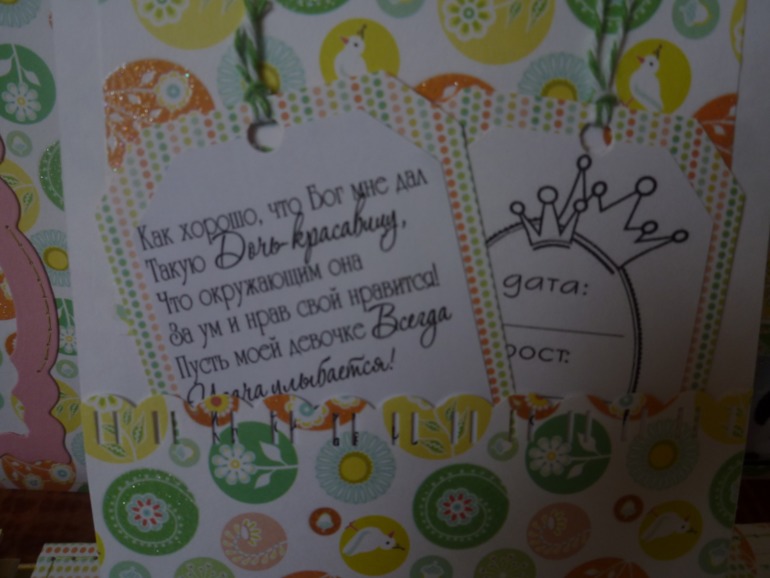 Как хорошо, что Бог мне дал
Такую Дочь-красавицу,
Что окружающим она
За ум и нрав свой нравится!
Пусть моей девочке Всегда
Удача улыбается!
дата:
рост: